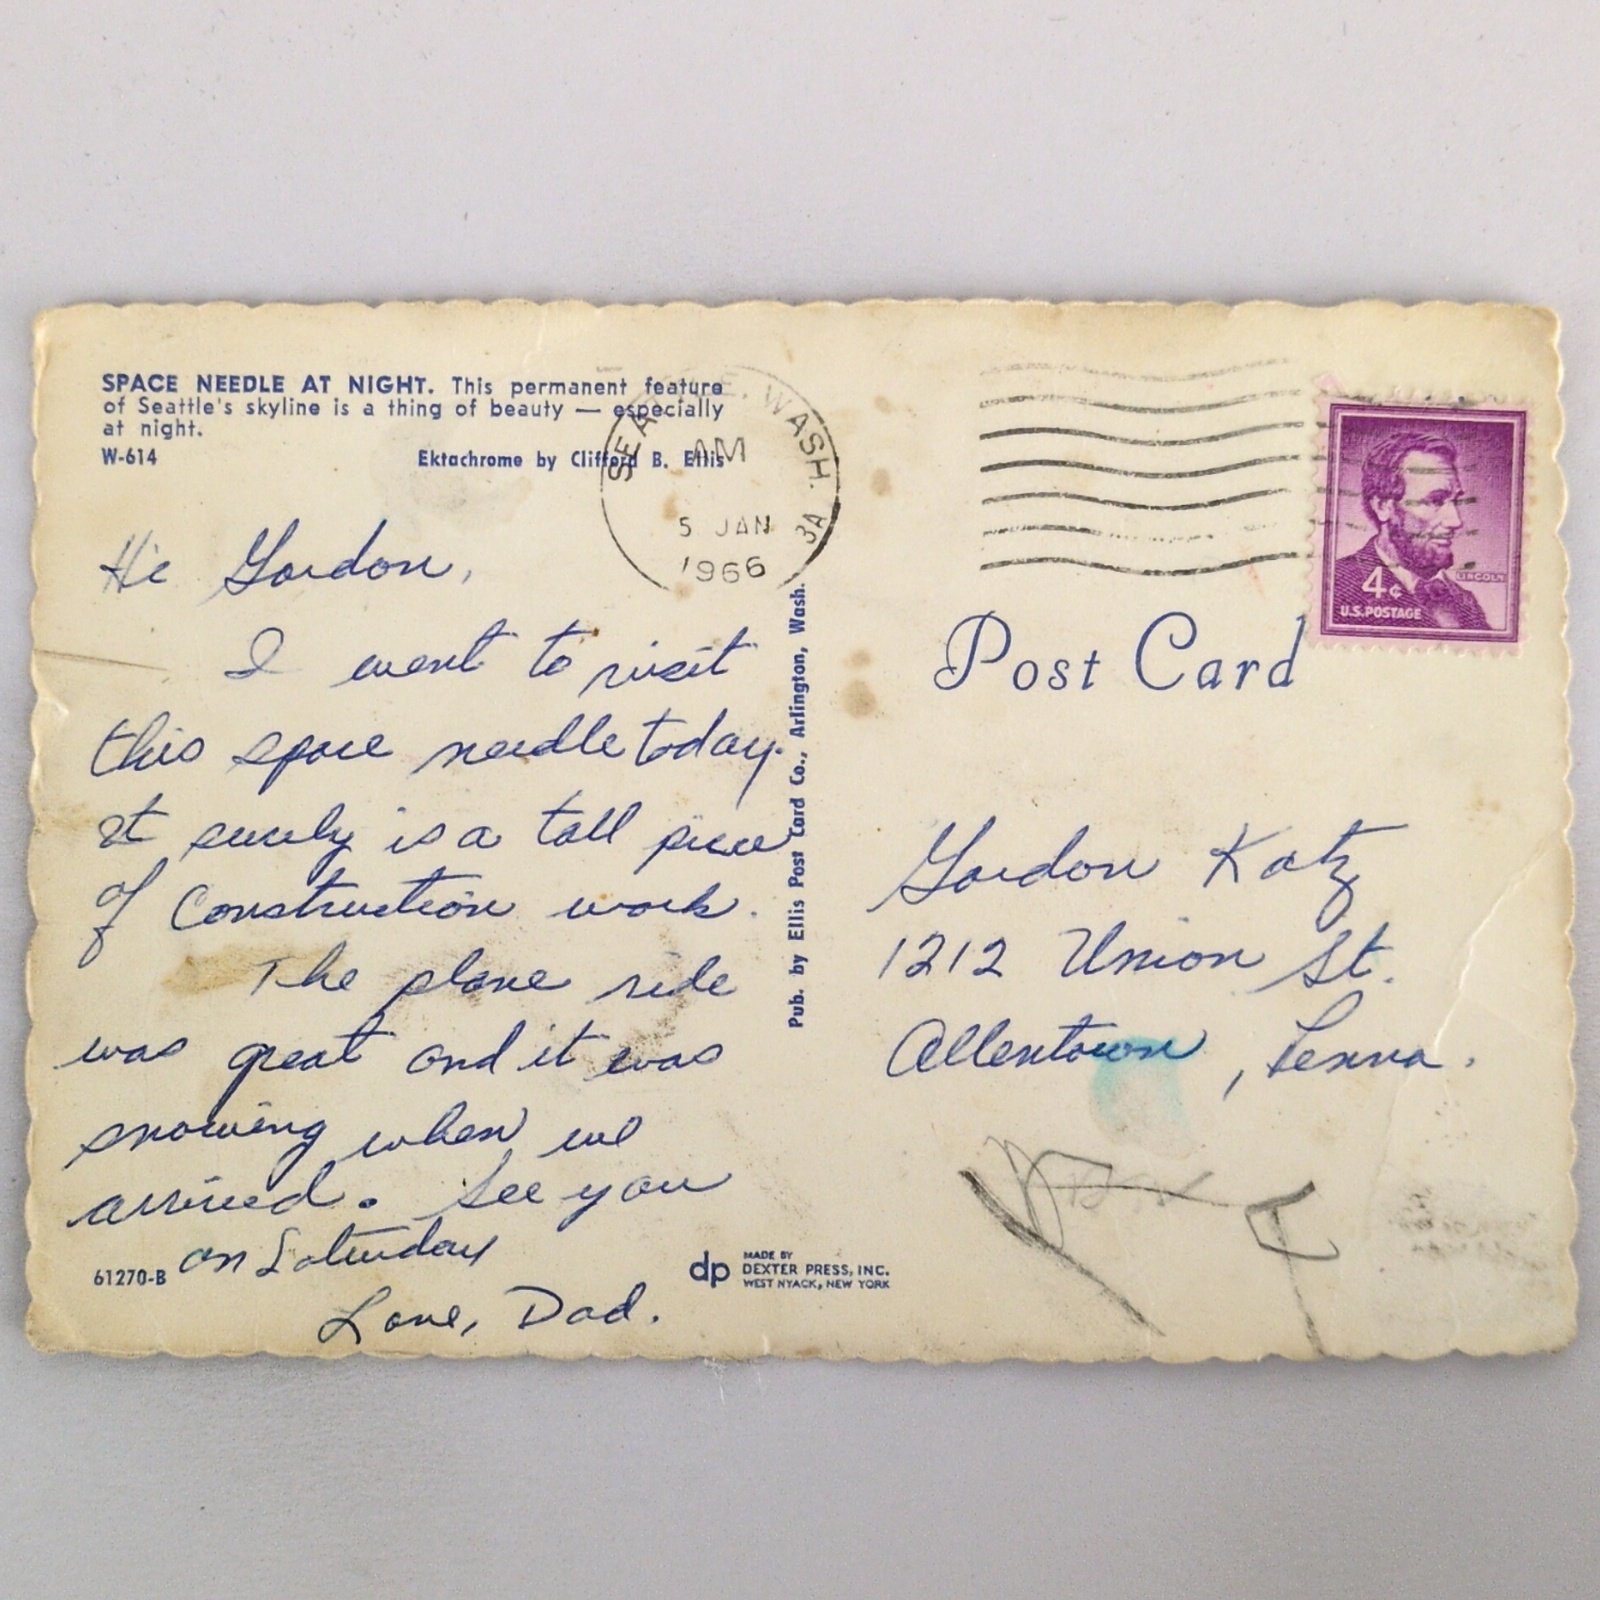 SPACE NEEDLE AT NIGHT. This permanent feature
of Seattle's skyline is a thing of beauty — especially
at night.
W-614 Ektachrome by Clifford B. Ellis
SEATTLE, WASH. 3A
AM
5 JAN
1966
Hi Gordon,
I went to visit
this space needle today.
It surely is a tall piece
of Construction work.
The plane ride
was great and it was
snowing when we
arrived. See you
on Saturday
Love, Dad.
61270-B
Pub. by Ellis Post Card Co., Arlington, Wash.
dp MADE BY
DEXTER PRESS, INC.
WEST NYACK, NEW YORK
LINCOLN
4¢
U.S. POSTAGE
Post Card
Gordon Katz
1212 Union St.
Allentown, Penna.